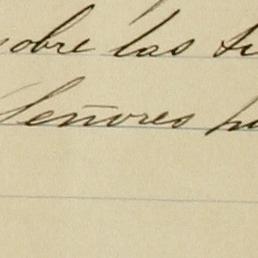 sobre las
Señores